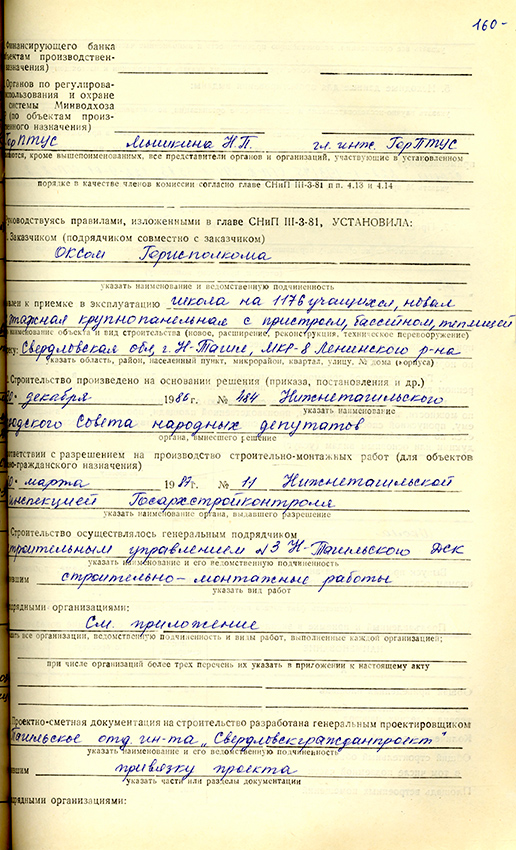 160-
финансирующего банка
объектам производствен-
назначения)
Органов по регулирова-
использования и охране
системы Минводхоза
(по объектам произ-
венного назначения)
ГорПТУС Мышкина Н.П. гл. инж. ГорПТУС
ваются, кроме вышепоименованных, все представители органов и организаций, участвующие в установленном
порядке в качестве членов комиссии согласно главе СНиП III-3-81 п п. 4.13 и 4.14
уководствуясь правилами, изложенными в главе СНиП III-3-81, УСТАНОВИЛА:
. Заказчиком (подрядчиком совместно с заказчиком)
ОКСом Горисполкома
указать наименование и ведомственную подчиненность
влен к приемке в эксплуатацию школа на 1176 учащихся, новая
этажная крупнопанельная с пристроем, бассейном, теплицей
наименование объекта и вид строительства (новое, расширение, реконструкция, техническое перевооружение)
ресу: Свердловская обл, г. Н-Тагил, МКР-8 Ленинского р-на
указать область, район, населенный пункт, микрорайон, квартал, улицу, № дома (корпуса)
. Строительство произведено на основании решения (приказа, постановления и др.)
30. декабря 1986г. № 484 Нижнетагильского
указать наименование
родского Совета народных депутатов
органа, вынесшего решение
ответствии с разрешением на производство строительно-монтажных работ (для объектов
но-гражданского назначения)
марта 1987г. № 11 Нижнетагильской
инспекцией Госархстройконтроля
указать наименование органа, выдавшего разрешение
. Строительство осуществлялось генеральным подрядчиком
троительным управлением №3 Н-Тагильского ДСК
указать наименование и его ведомственную подчиненность
вшим строительно-монтажные работы
указать вид работ
дрядными организациями:
См. приложение
зать все организации, ведомственную подчиненность и виды работ, выполненные каждой организацией;
при числе организаций более трех перечень их указать в приложении к настоящему акту
. Проектно-сметная документация на строительство разработана генеральным проектировщиком
Тагильское отд. ин-та „Свердловскгражданпроект"
указать наименование и его ведомственную подчиненность
вшим привязку проекта
указать части или разделы документации
дрядными организациями: